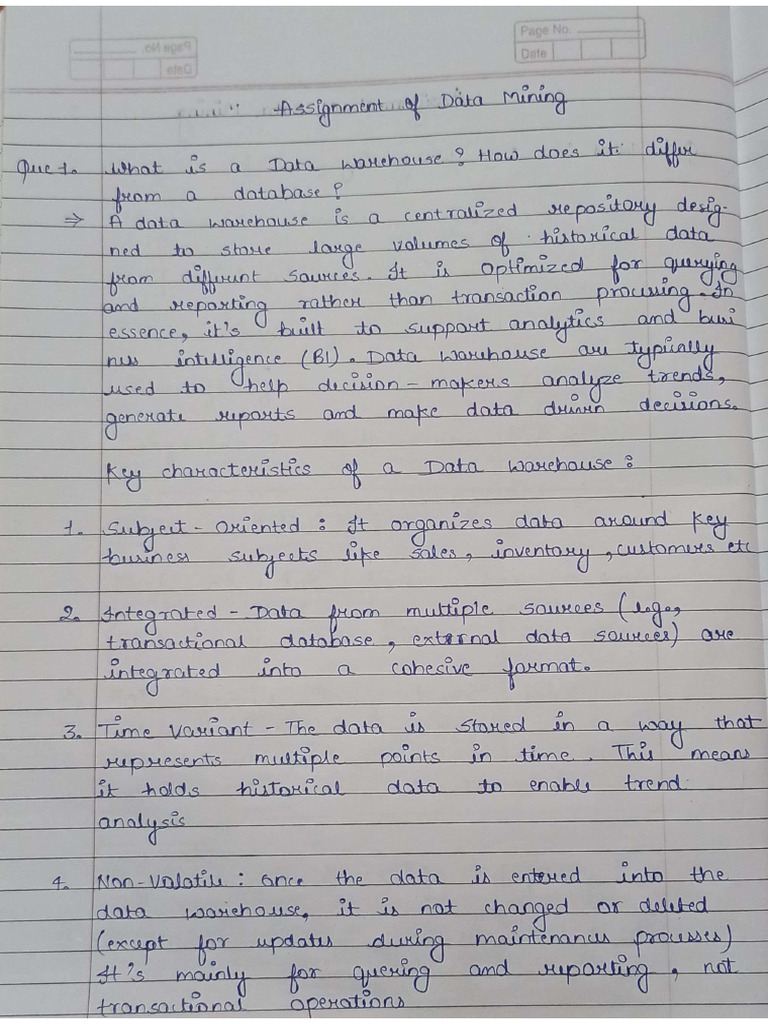 Page No.
Date
Page No.
Date
Assignment of Data Mining
Que 1. What is a Data warehouse? How does it differ
from a database?
⇒ A data warehouse is a centralized repository desig-
ned to store large volumes of historical data
from different sources. It is optimized for querying
and reporting rather than transaction processing. In
essence, it's built to support analytics and busi
ness intelligence (BI). Data warehouse are typically
used to help decision-makers analyze trends,
generate reports and make data driven decisions.
Key characteristics of a Data warehouse:
1. Subject-Oriented: It organizes data around key
business subjects like sales, inventory, customers etc
2. Integrated - Data from multiple sources (
transactional database, external data sources) are
integrated into a cohesive format.
3. Time Variant - The data is stored in a way that
represents multiple points in time. This means
it holds historical data to enable trend
analysis
4. Non-Volatile: Once the data is entered into the
data warehouse, it is not changed or deleted
(except for updates during maintenance processes)
It's mainly for quering and reporting, not
transactional operations